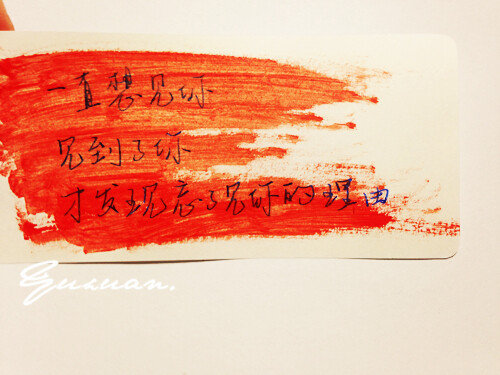 一直想见你
见到了你
才发现忘了见你的理由